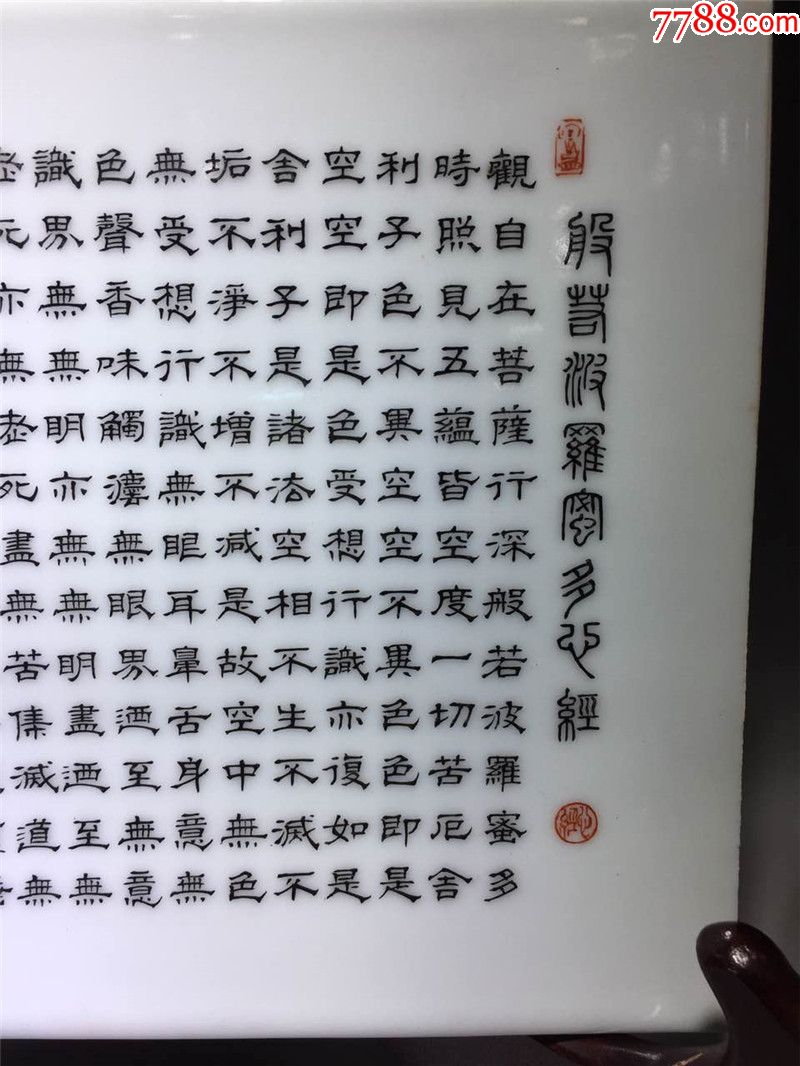 7788.com
般若波羅蜜多心經
觀自在菩薩行深般若波羅蜜多
時照見五蘊皆空度一切苦厄舍
利子色不異空空不異色色即是
空空即是色受想行識亦復如是
舍利子是諸法空相不生不滅不
垢不淨不增不減是故空中無色
無受想行識無眼耳鼻舌身意無
色聲香味觸法無眼界迺至無意
識界無無明亦無無明盡迺至無
老死亦無老死盡無苦集滅道無